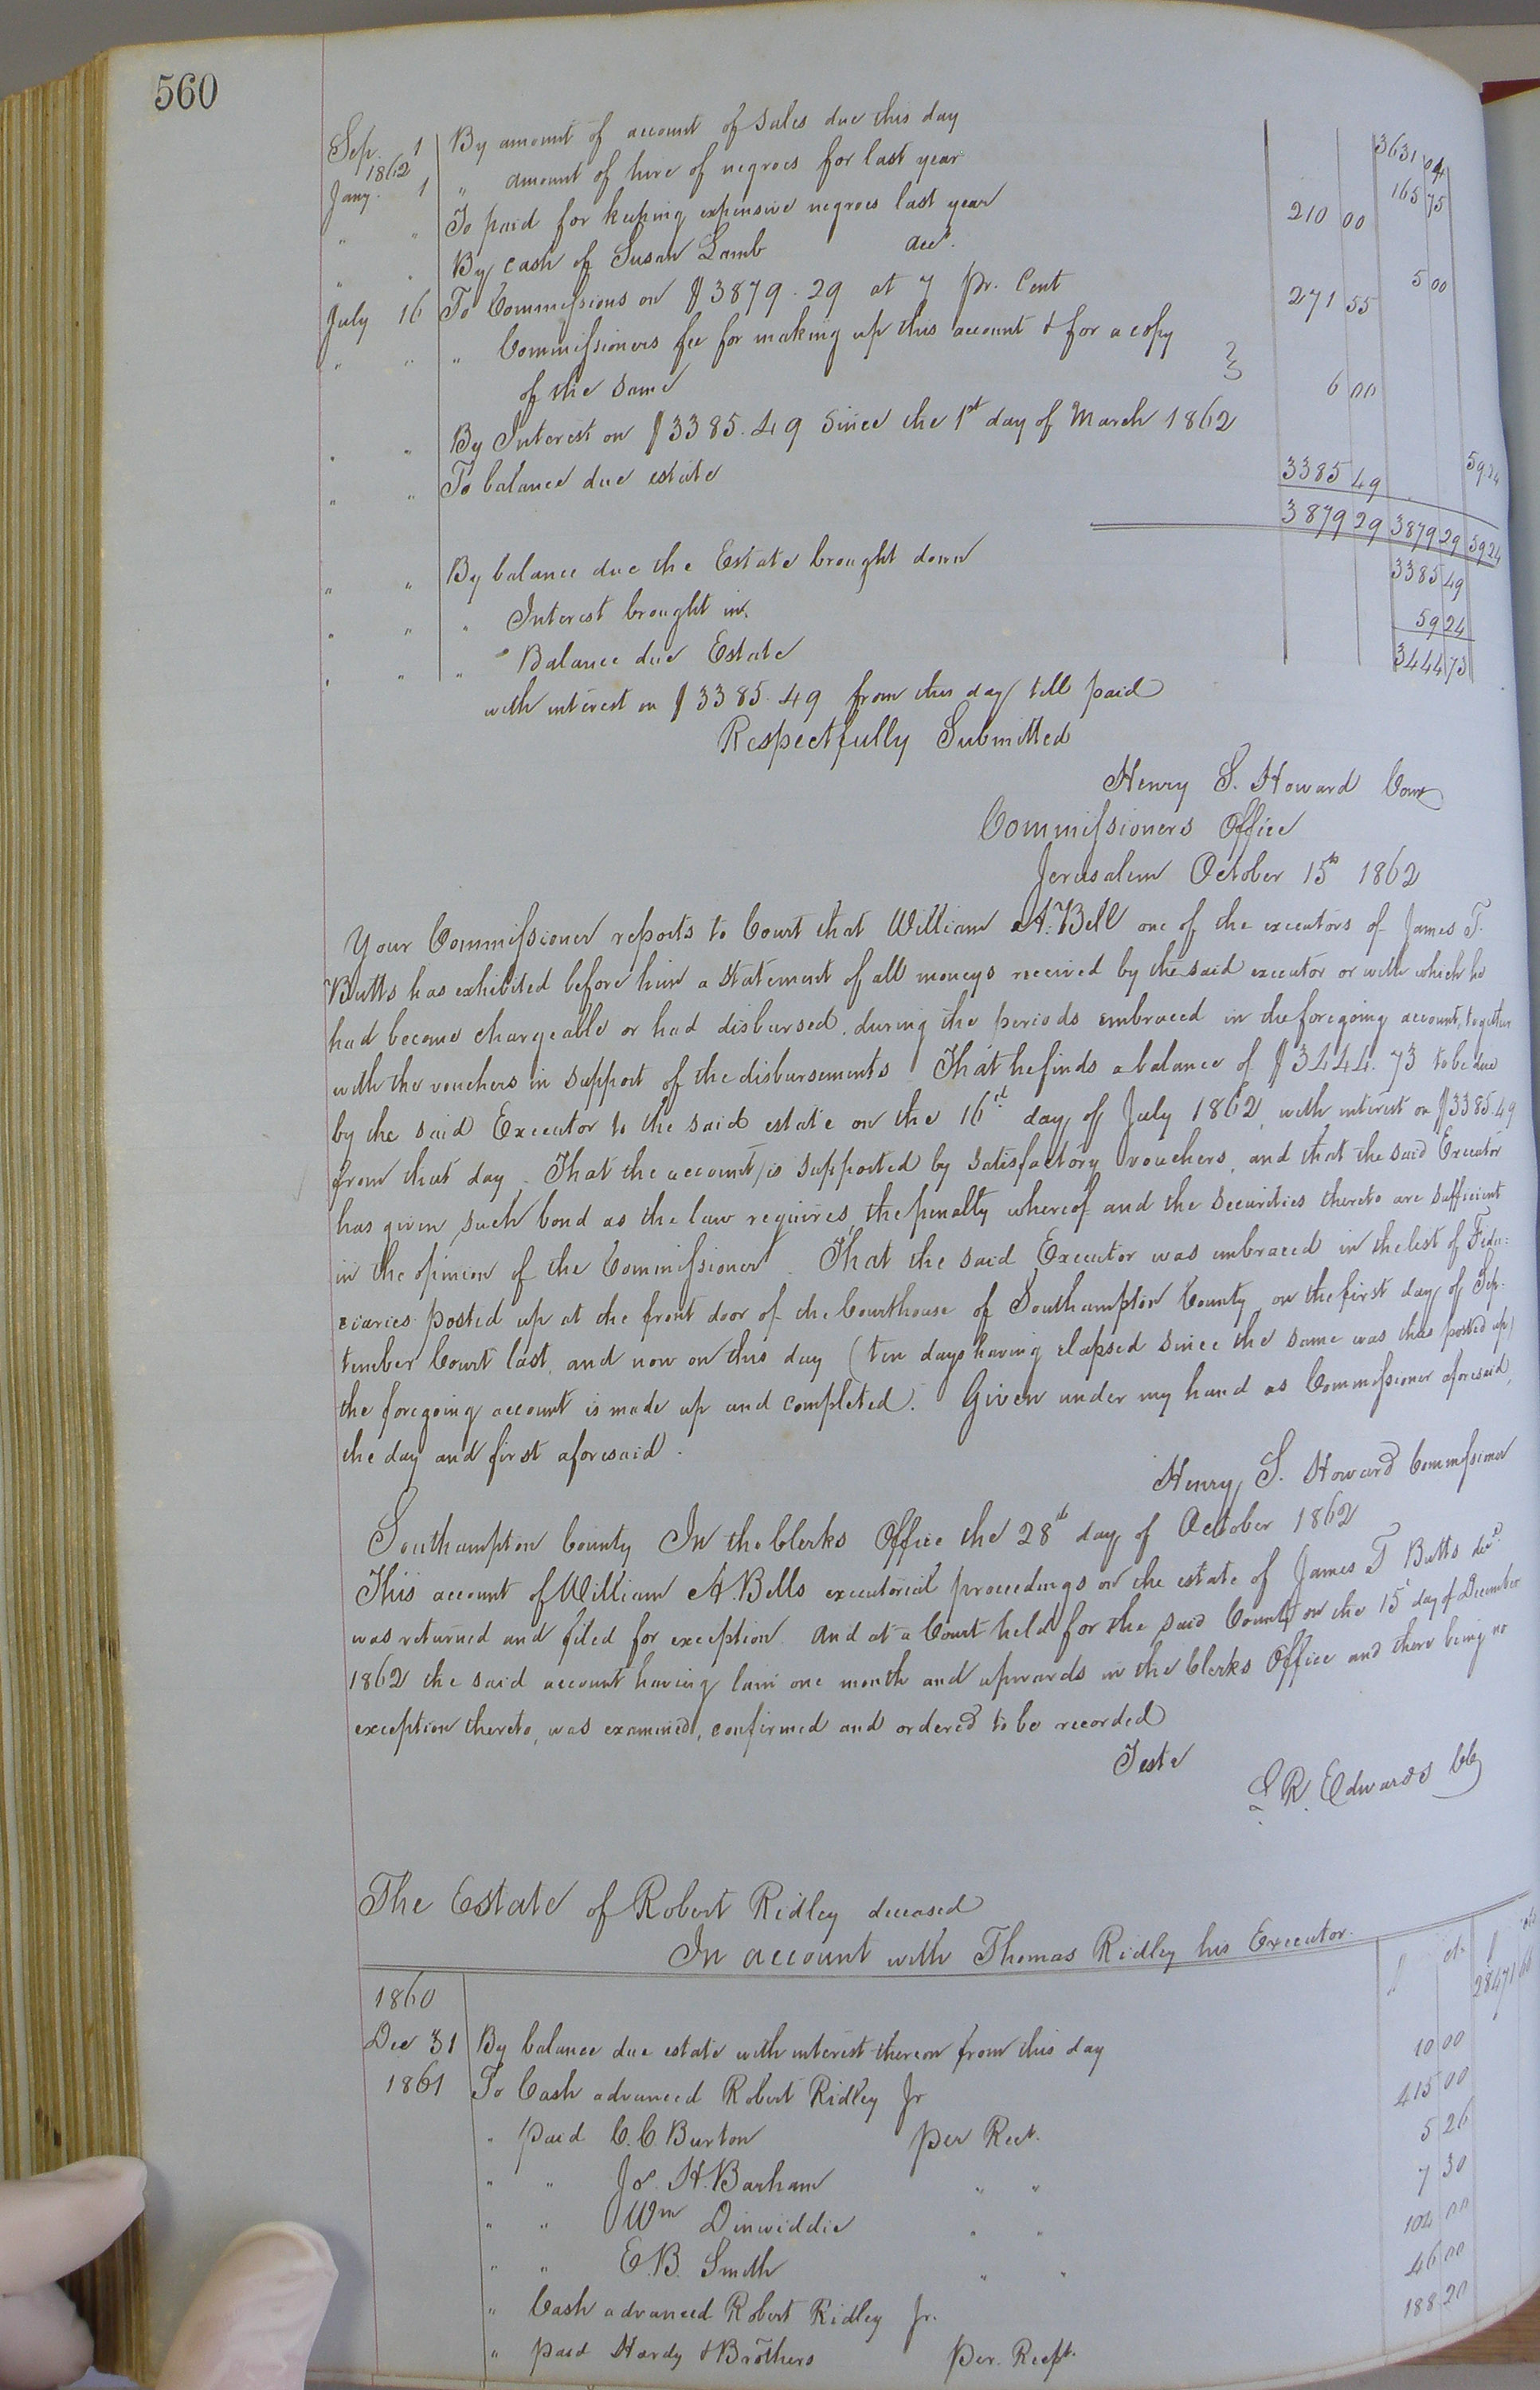 560
Sep. 1 By amount of account of sales due this day 3631 04
1862
Jany. 1 " amount of hire of negroes for last year 165 75
" " To paid for keeping expensive negroes last year 210 00
" " By cash of Susan Lamb acct. 5 00
July 16 To Commissions on $3879.29 at 7 pr. Cent 271 55
" " " Commissioners fee for making up this account & for a copy
of the same 6 00
" " By Interest on $3385.49 since the 1st day of March 1862 59 24
" " To balance due estate 3385 49
3879 29 3879 29 59 24
" " By balance due the Estate brought down 3385 49
" " " Interest brought in 59 24
" " " Balance due Estate 3444 73
with interest on $3385.49 from this day till paid
Respectfully Submitted
Henry S. Howard Comr
Commissioners Office
Jerusalem October 15th 1862
Your Commissioner reports to Court that William A. Bell one of the executors of James T.
Butts has exhibited before him a statement of all moneys received by the said executor or with which he
had become chargeable or had disbursed, during the periods embraced in the foregoing account, together
with the vouchers in support of the disbursements That he finds a balance of $3444.73 to be due
by the said Executor to the said estate on the 16th day of July 1862, with interest on $3385.49
from that day. That the account is supported by satisfactory vouchers, and that the said Executor
has given such bond as the law requires, the penalty whereof and the securities thereto are sufficient
in the opinion of the Commissioner. That the said Executor was embraced in the list of Fidu=
ciaries posted up at the front door of the Courthouse of Southampton County on the first day of Sep-
tember Court last, and now on this day (ten days having elapsed since the same was thus posted up)
the foregoing account is made up and completed. Given under my hand as Commissioner aforesaid,
the day and first aforesaid.
Henry S. Howard Commissioner
Southampton County In the Clerks Office the 28th day of October 1862
This account of William A. Bells executorial proceedings on the estate of James T Butts decd.
was returned and filed for exception. And at a Court held for the said County on the 15t day of December
1862 the said account having lain one month and upwards in the Clerks Office and there being no
exception thereto, was examined, confirmed and ordered to be recorded
Teste
L R. Edwards CC
The Estate of Robert Ridley deceased
In account with Thomas Ridley his Executor.
1860 $ cts $ cts
Dec 31 By balance due estate with interest thereon from this day 28471 60
1861 To Cash advanced Robert Ridley Jr 10 00
" paid C. C. Burton per Rect. 415 00
" " Jos. H. Barham " " 5 26
" " Wm Dinwiddie " " 7 30
" " E. B. Smith " " 104 00
" Cash advanced Robert Ridley Jr. 46 00
" paid Hardy & Brothers Per. Recpt. 188 20